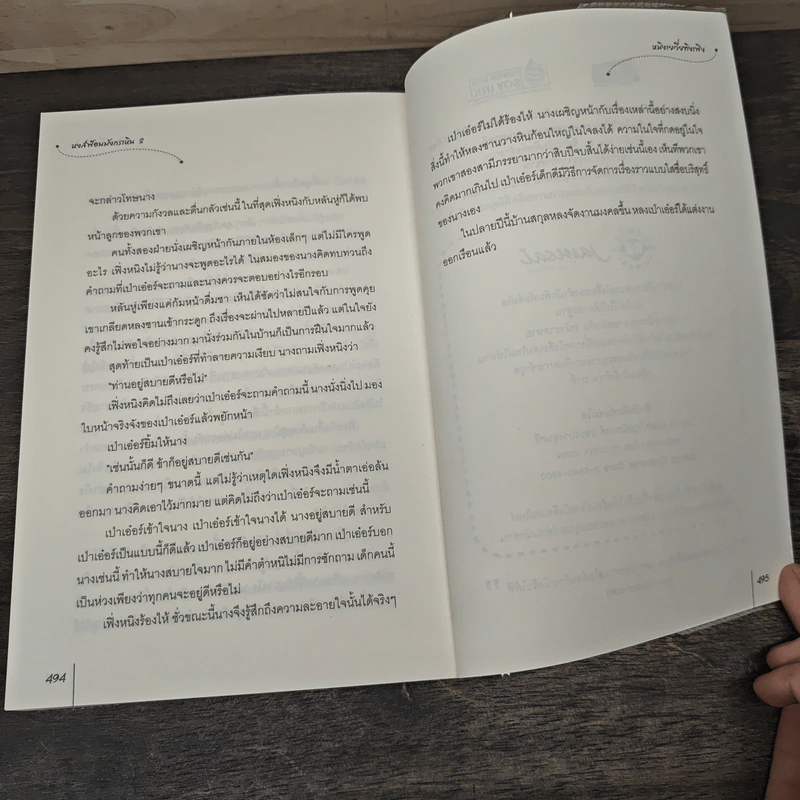 หงส์ฟ้อนมังกรเหิน 2
จะกล่าวโทษนาง
ด้วยความกังวลและตื่นกลัวเช่นนี้ ในที่สุดเฟิ่งหนิงกับหลันหู่ก็ได้พบ
หน้าลูกของพวกเขา
คนทั้งสองฝ่ายนั่งเผชิญหน้ากันภายในห้องเล็กๆ แต่ไม่มีใครพูด
อะไร เฟิ่งหนิงไม่รู้ว่านางจะพูดอะไรได้ ในสมองของนางคิดทบทวนถึง
คำถามที่เป่าเอ๋อร์จะถามและนางควรจะตอบอย่างไรอีกรอบ
หลันหู่เพียงแค่ก้มหน้าดื่มชา เห็นได้ชัดว่าไม่สนใจกับการพูดคุย
เขาเกลียดหลงซานเข้ากระดูก ถึงเรื่องจะผ่านไปหลายปีแล้ว แต่ในใจยัง
คงรู้สึกไม่พอใจอย่างมาก มานั่งร่วมกันในบ้านก็เป็นการฝืนใจมากแล้ว
สุดท้ายเป็นเป่าเอ๋อร์ที่ทำลายความเงียบ นางถามเฟิ่งหนิงว่า
"ท่านอยู่สบายดีหรือไม่"
เฟิ่งหนิงคิดไม่ถึงเลยว่าเป่าเอ๋อร์จะถามคำถามนี้ นางนั่งนิ่งไป มอง
ใบหน้าจริงจังของเป่าเอ๋อร์แล้วพยักหน้า
เป่าเอ๋อร์ยิ้มให้นาง
"เช่นนั้นก็ดี ข้าก็อยู่สบายดีเช่นกัน"
คำถามง่ายๆ ขนาดนี้ แต่ไม่รู้ว่าเหตุใดเฟิ่งหนิงจึงมีน้ำตาเอ่อล้น
ออกมา นางคิดเอาไว้มากมาย แต่คิดไม่ถึงว่าเป่าเอ๋อร์จะถามเช่นนี้
เป่าเอ๋อร์เข้าใจนาง เป่าเอ๋อร์เข้าใจนางได้ นางอยู่สบายดี สำหรับ
เป่าเอ๋อร์เป็นแบบนี้ก็ดีแล้ว เป่าเอ๋อร์ก็อยู่อย่างสบายดีมาก เป่าเอ๋อร์บอก
นางเช่นนี้ ทำให้นางสบายใจมาก ไม่มีคำตำหนิไม่มีการซักถาม เด็กคนนี้
เป็นห่วงเพียงว่าทุกคนจะอยู่ดีหรือไม่
เฟิ่งหนิงร้องไห้ ชั่วขณะนี้นางจึงรู้สึกถึงความละอายใจนั้นได้จริงๆ
494
เป่าเอ๋อร์ไม่ได้ร้องไห้ นางเผชิญหน้ากับเรื่องเหล่านี้อย่างสงบนิ่ง
สิ่งนี้ทำให้หลงซานวางหินก้อนใหญ่ในใจลงได้ ความในใจที่กดอยู่ในใจ
พวกเขาสองสามีภรรยามากว่าสิบปีจบสิ้นได้ง่ายเช่นนี้เอง เห็นทีพวกเขา
คงคิดมากเกินไป เป่าเอ๋อร์เด็กดีมีวิธีการจัดการเรื่องราวแบบใสซื่อบริสุทธิ์
ของนางเอง
ในปลายปีนี้บ้านสกุลหลงจัดงานมงคลขึ้น หลงเป่าเอ๋อร์ได้แต่งงาน
ออกเรือนแล้ว
495